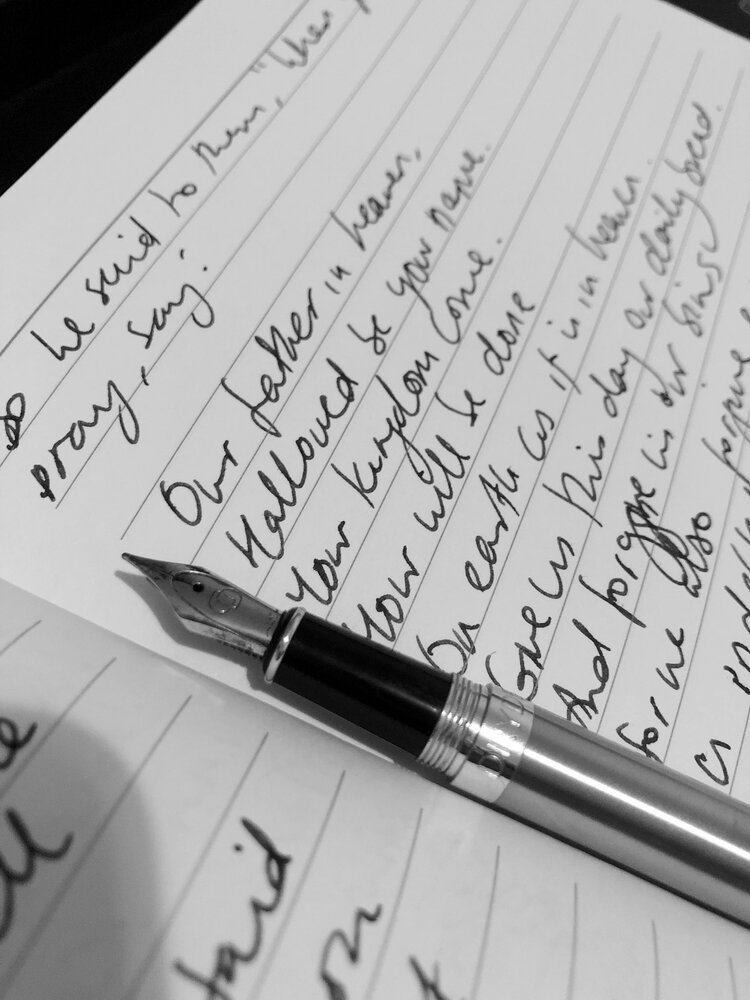 So he said to them, "When
pray, say:
Our father in heaven,
Hallowed be your name.
Your kingdom come.
Your will be done
On earth as it is in heaven.
Give us this day our daily bread.
And forgive us our sins
for we also forgive
is indebted
said
on